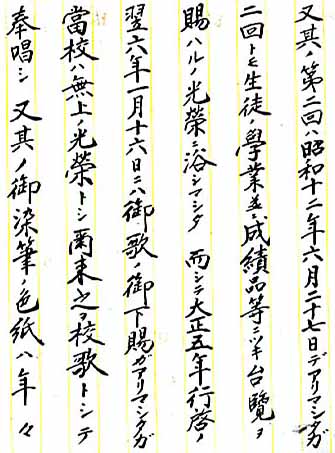 又其ノ第二回ハ昭和十二年六月二十七日デアリマシタガ
二回トモ生徒ノ學業並ニ成績品等ニツキ台覽ヲ
賜ハルノ光榮ニ浴シマシタ 而シテ大正五年行啓ノ
翌六年一月十六日ニハ御歌ノ御下賜ガアリマシタガ
當校ハ無上ノ光榮トシ爾来之ヲ校歌トシテ
奉唱シ 又其ノ御染筆ノ色紙ハ年々